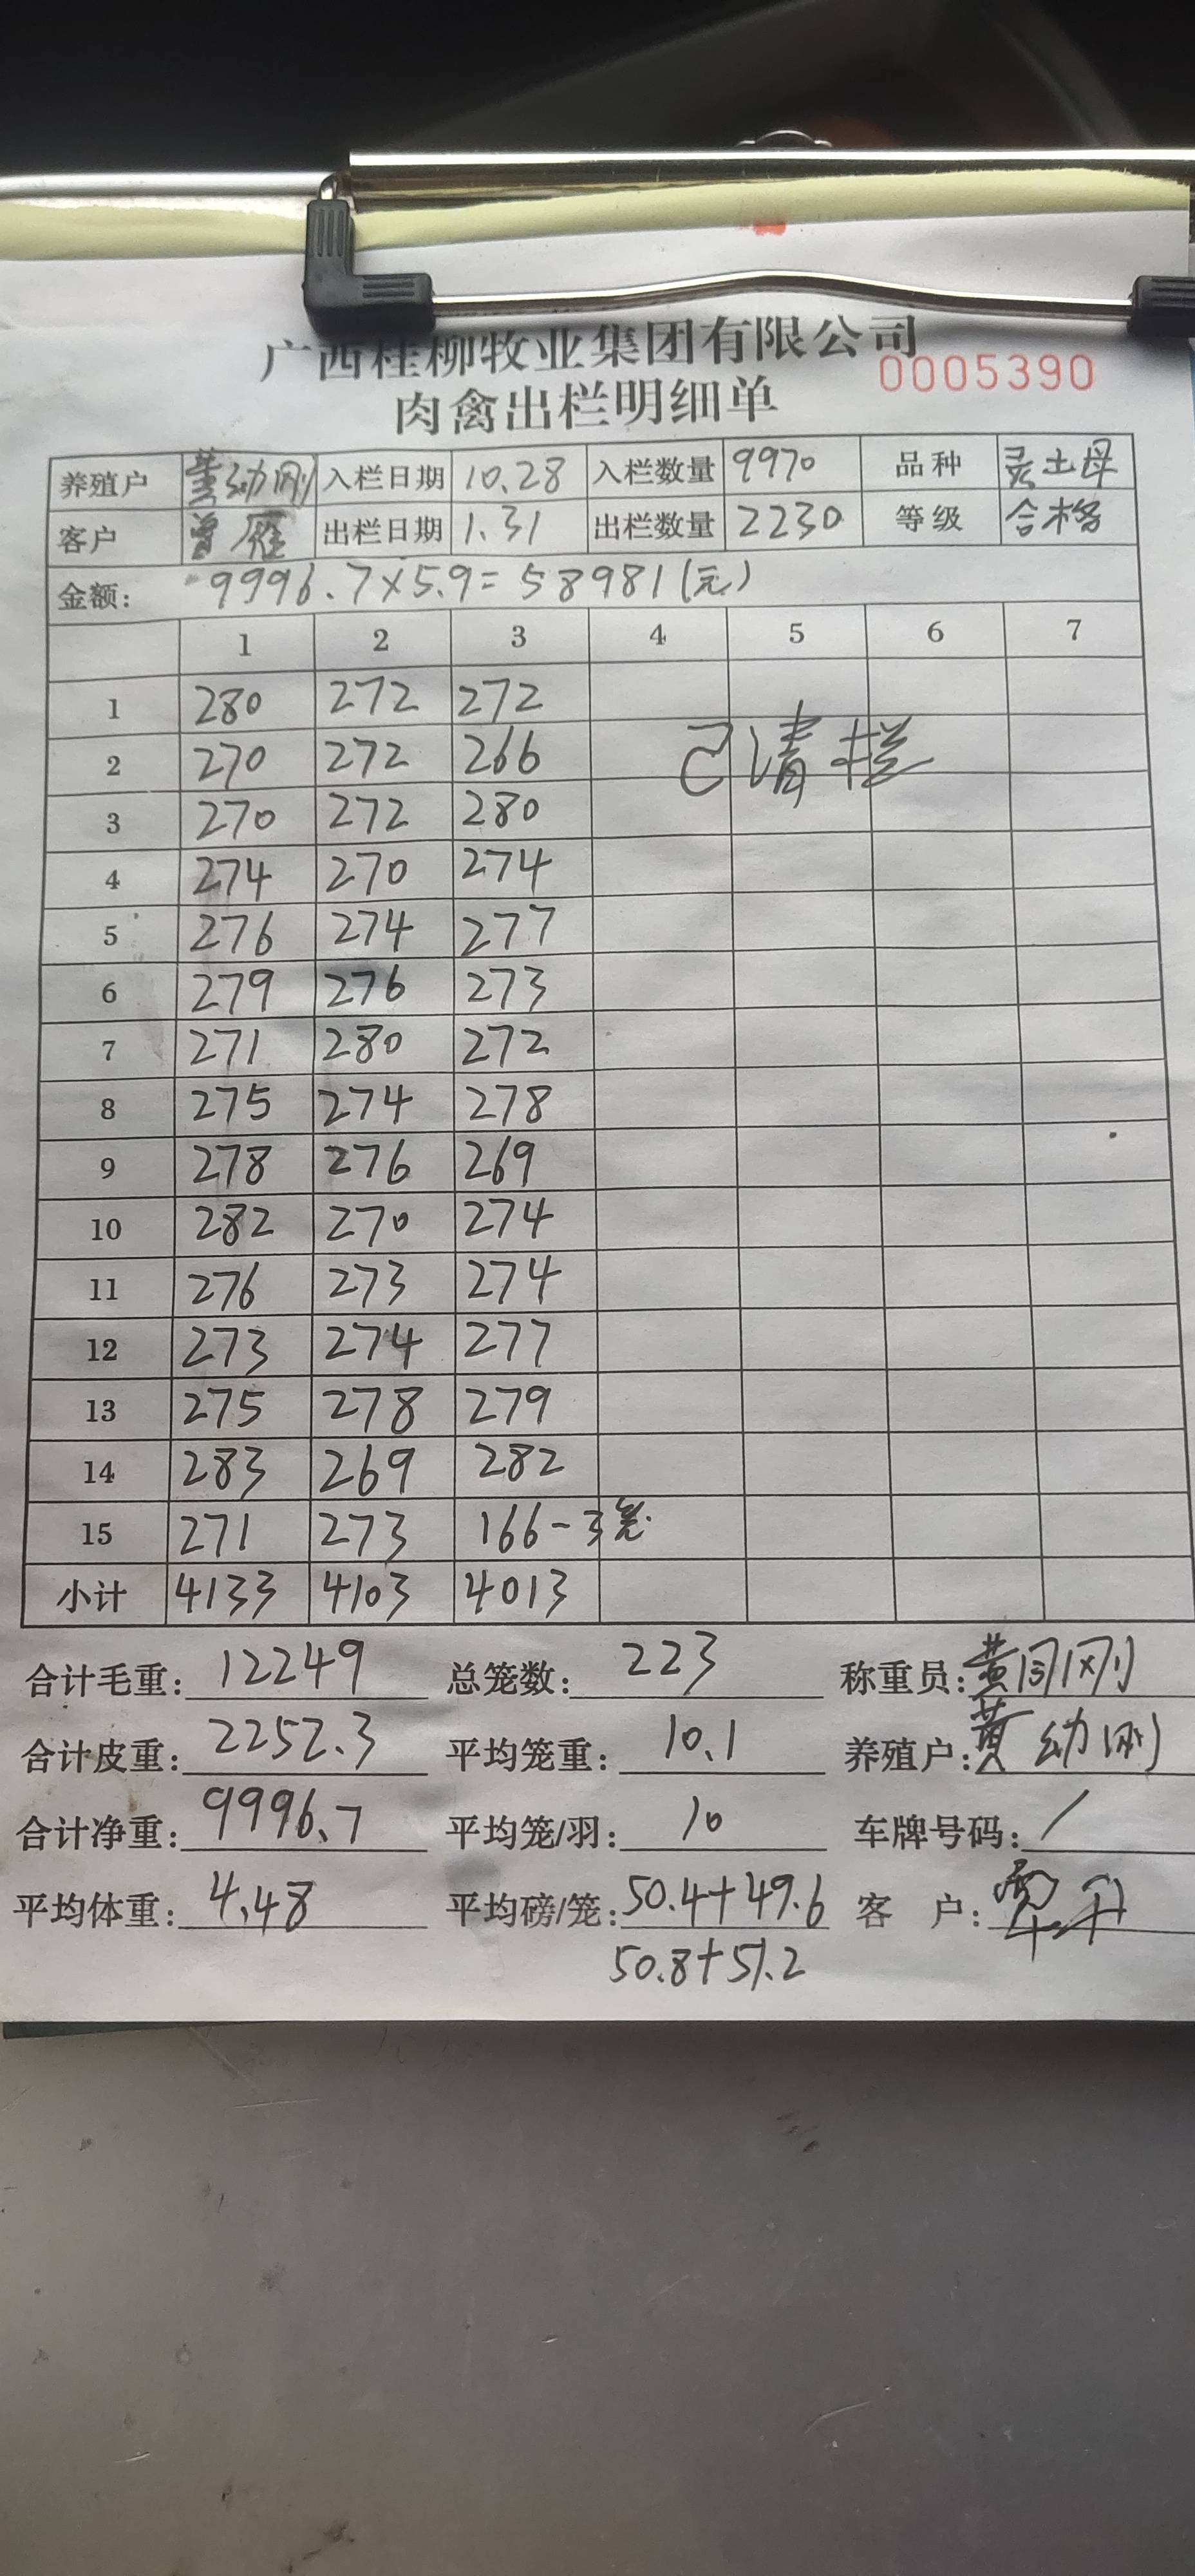 广西桂柳牧业集团有限公司
肉禽出栏明细单 0005390
养殖户 黄幼刚 入栏日期 10.28 入栏数量 9970 品种 灵土母
客户 曾雁 出栏日期 1.31 出栏数量 2230 等级 合格
金额: 9996.7×5.9=58981(元)
1 2 3 4 5 6 7
1 280 272 272
2 270 272 266 已清栏
3 270 272 280
4 274 270 274
5 276 274 277
6 279 276 273
7 271 280 272
8 275 274 278
9 278 276 269
10 282 270 274
11 276 273 274
12 273 274 277
13 275 278 279
14 283 269 282
15 271 273 166-3笼
小计 4133 4103 4013
合计毛重: 12249 总笼数: 223 称重员: 黄刚
合计皮重: 2252.3 平均笼重: 10.1 养殖户: 黄幼刚
合计净重: 9996.7 平均笼/羽: 10 车牌号码: /
平均体重: 4.48 平均磅/笼: 50.4+49.6 客 户:
50.8+51.2